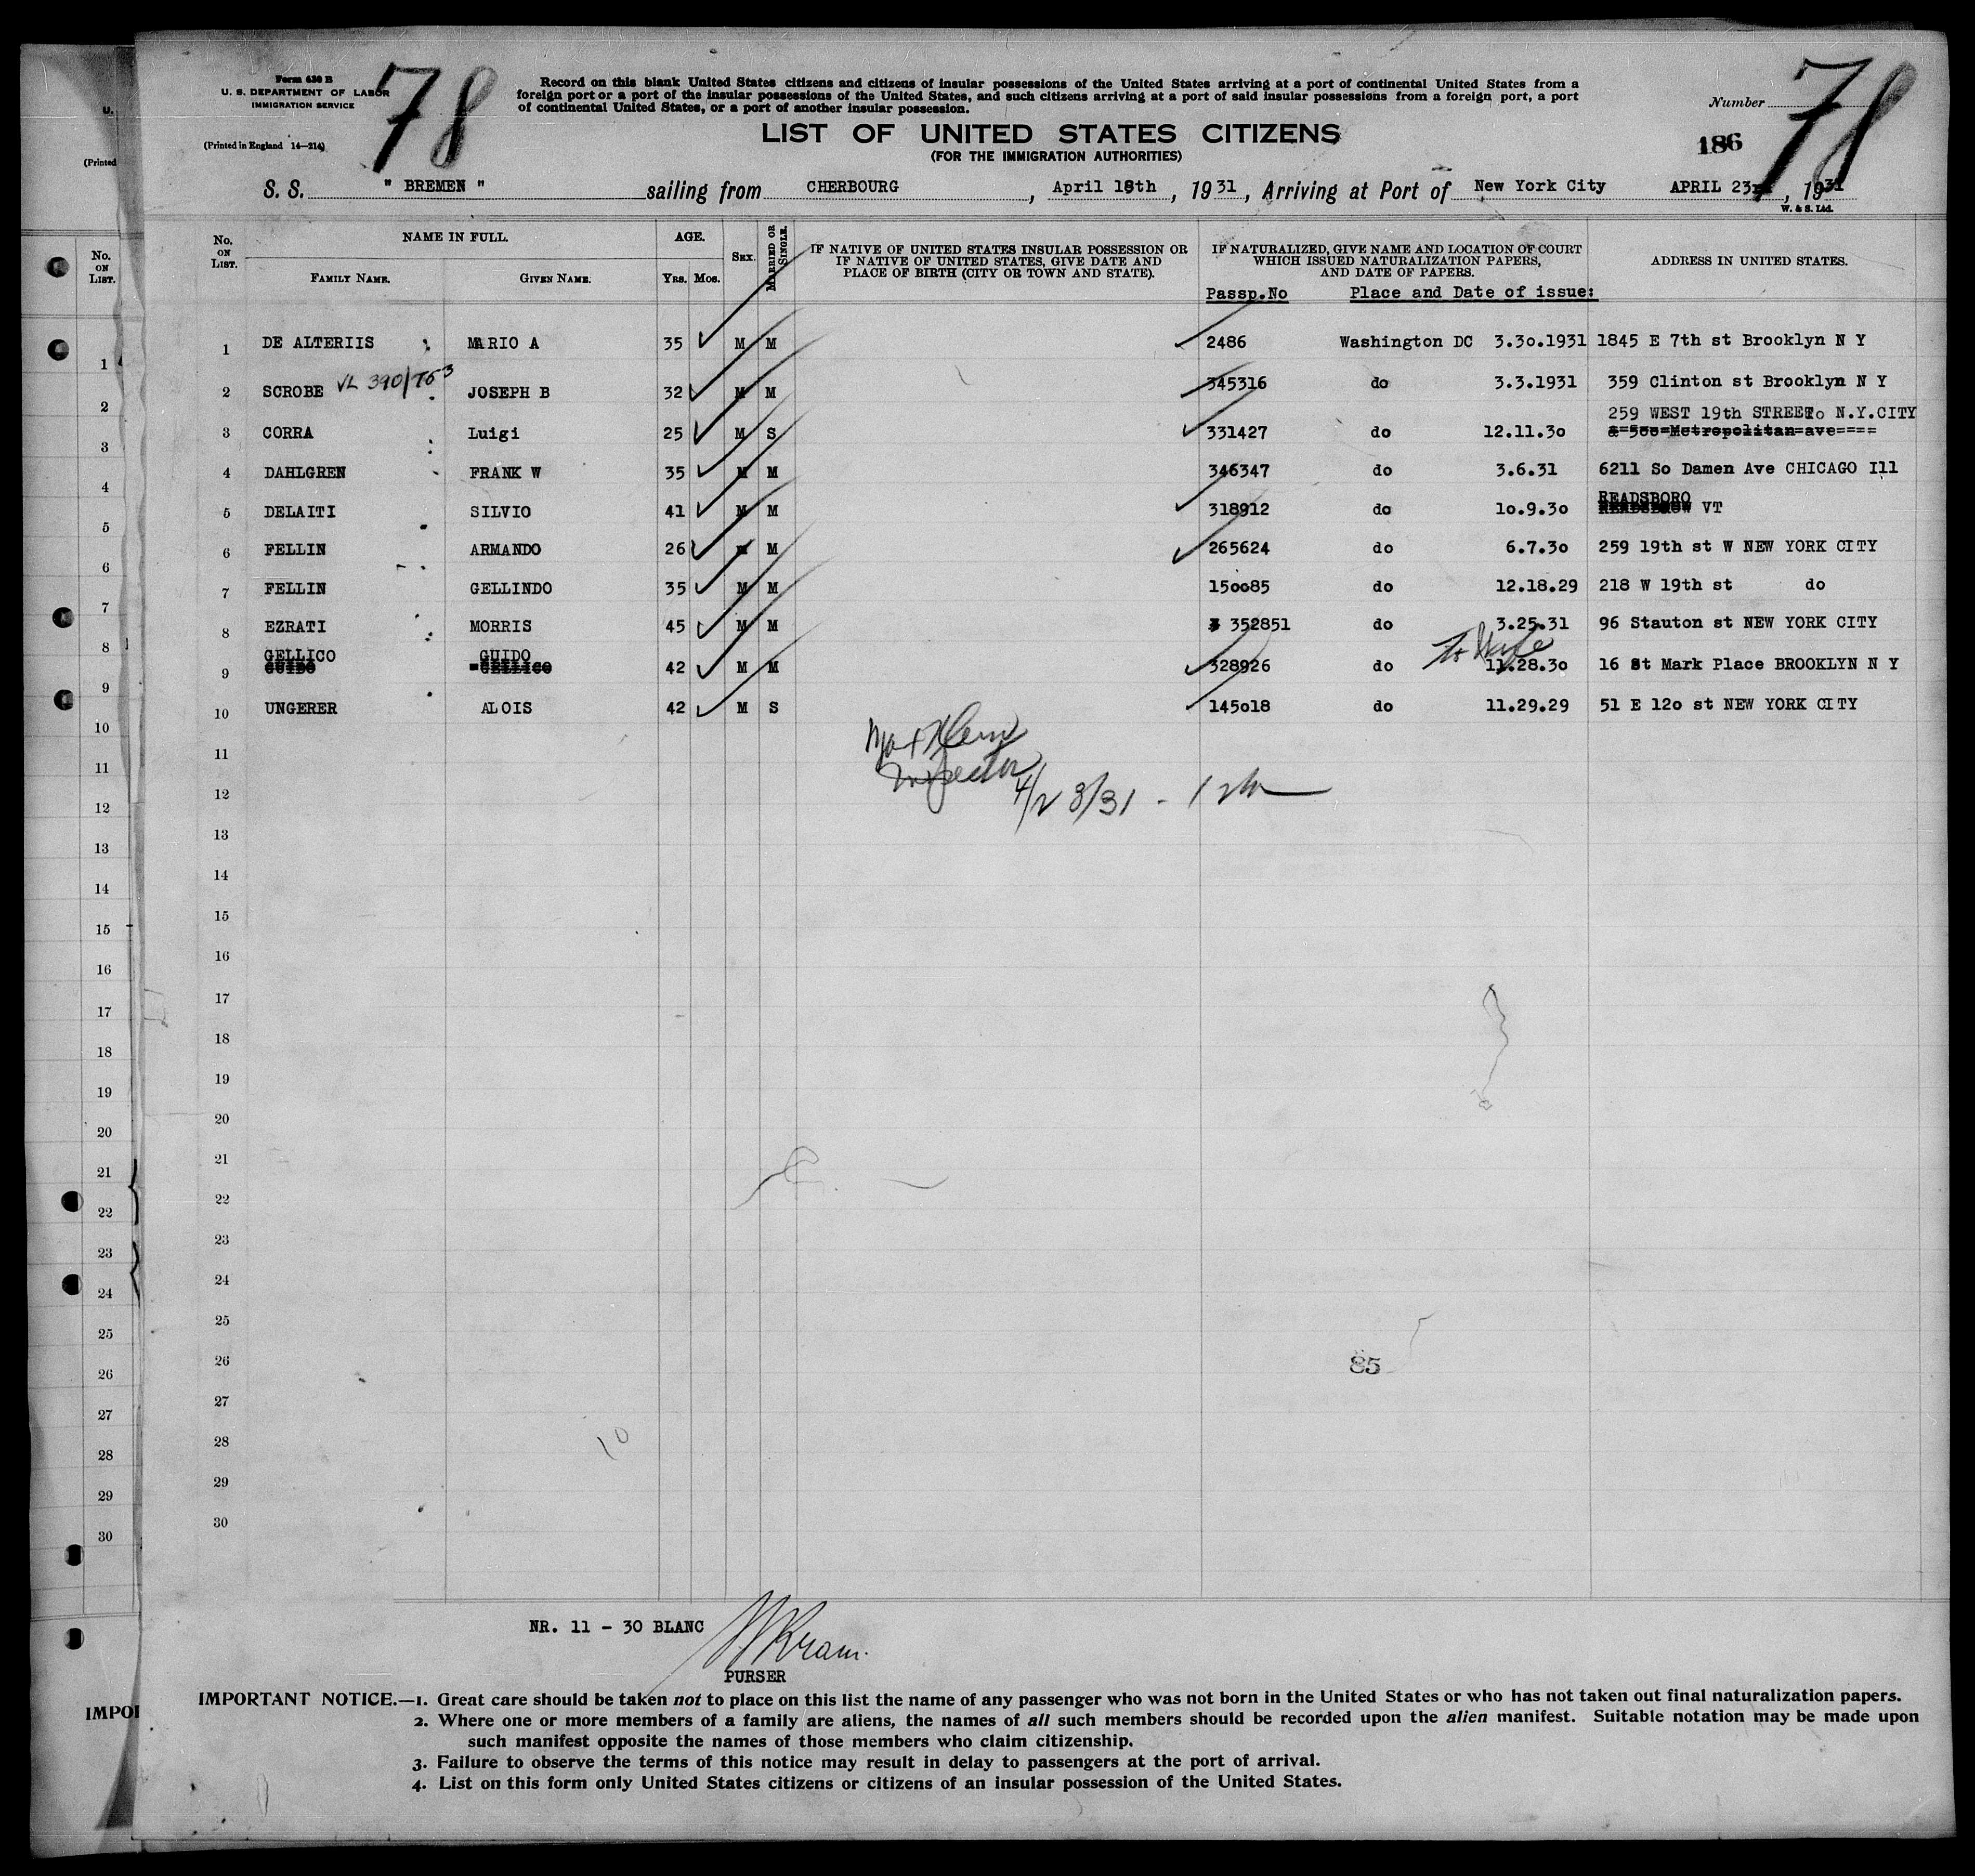 Form 630 B
U. S. DEPARTMENT OF LABOR
IMMIGRATION SERVICE
(Printed in England 14—214)
78
Record on this blank United States citizens and citizens of insular possessions of the United States arriving at a port of continental United States from a
foreign port or a port of the insular possessions of the United States, and such citizens arriving at a port of said insular possessions from a foreign port, a port
of continental United States, or a port of another insular possession.
Number
78
186
LIST OF UNITED STATES CITIZENS
(FOR THE IMMIGRATION AUTHORITIES)
S. S. " BREMEN " sailing from CHERBOURG, April 18th, 1931, Arriving at Port of New York City APRIL 23rd, 1931
W. & S. Ltd.
No. ON LIST. NAME IN FULL. AGE. SEX. MARRIED OR SINGLE. IF NATIVE OF UNITED STATES INSULAR POSSESSION OR IF NATIVE OF UNITED STATES, GIVE DATE AND PLACE OF BIRTH (CITY OR TOWN AND STATE). IF NATURALIZED, GIVE NAME AND LOCATION OF COURT WHICH ISSUED NATURALIZATION PAPERS, AND DATE OF PAPERS. ADDRESS IN UNITED STATES.
FAMILY NAME. GIVEN NAME. YRS. MOS.
Passp.No Place and Date of issue:
1 DE ALTERIIS MARIO A 35 M M 2486 Washington DC 3.30.1931 1845 E 7th st Brooklyn N Y
2 SCROBE VL 390/753 JOSEPH B 32 M M 345316 do 3.3.1931 359 Clinton st Brooklyn N Y
259 WEST 19th STREET N.Y.CITY
3 CORRA Luigi 25 M S 331427 do 12.11.30 500 Metropolitan ave
4 DAHLGREN FRANK W 35 M M 346347 do 3.6.31 6211 So Damen Ave CHICAGO Ill
READSBORO
5 DELAITI SILVIO 41 M M 318912 do 10.9.30 VT
6 FELLIN ARMANDO 26 M M 265624 do 6.7.30 259 19th st W NEW YORK CITY
7 FELLIN GELLINDO 35 M M 150085 do 12.18.29 218 W 19th st do
8 EZRATI MORRIS 45 M M 352851 do 3.25.31 96 Stauton st NEW YORK CITY
GELLICO GUIDO
9 GUIDO GELLICO 42 M M 328926 do 11.28.30 16 St Mark Place BROOKLYN N Y
10 UNGERER ALOIS 42 M S 145018 do 11.29.29 51 E 120 st NEW YORK CITY
Inspector
4/23/31
11
12
13
14
15
16
17
18
19
20
21
22
23
24
25
26
85
27
28
10
29
30
NR. 11 - 30 BLANC
PURSER
IMPORTANT NOTICE.—1. Great care should be taken not to place on this list the name of any passenger who was not born in the United States or who has not taken out final naturalization papers.
2. Where one or more members of a family are aliens, the names of all such members should be recorded upon the alien manifest. Suitable notation may be made upon
such manifest opposite the names of those members who claim citizenship.
3. Failure to observe the terms of this notice may result in delay to passengers at the port of arrival.
4. List on this form only United States citizens or citizens of an insular possession of the United States.